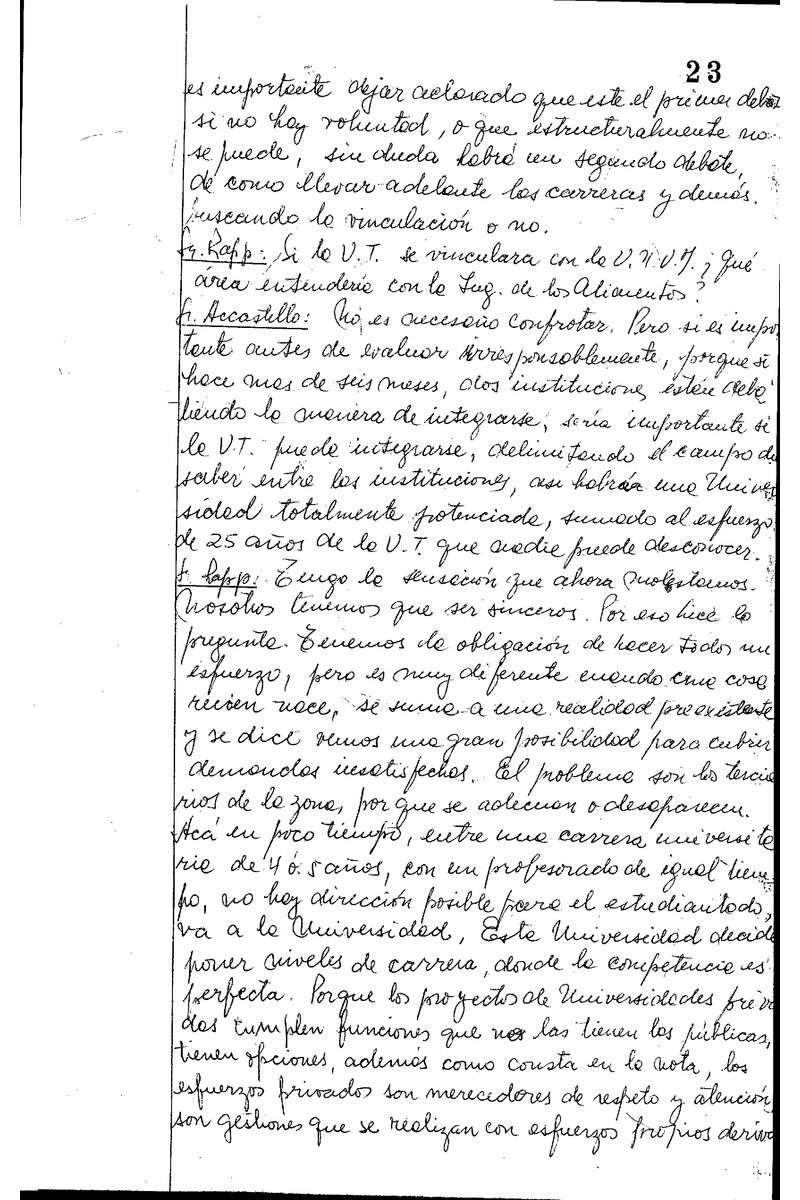 23
es importante dejar aclarado que este el primer debate
si no hay voluntad, o que estructuralmente no
se puede, sin duda habrá un segundo debate,
de como llevar adelante las carreras y demás.
buscando la vinculación o no.
Sr. Rapp: Si la U.T. se vinculara con la U.N.V.M. ¿Qué
área entendería con la Ing. de los Alimentos?
Sr. Accastello: No, es necesario confrotar. Pero si es impor
tante antes de evaluar irresponsablemente, porque si
hace mas de seis meses, dos instituciones están deba
tiendo la manera de integrarse, sería importante si
la U.T. puede integrarse, delimitando el campo de
saber entre las instituciones, asi habría una Univer
sidad totalmente potenciada, sumado al esfuerzo
de 25 años de la U.T. que nadie puede desconocer.
Sr. Rapp: Tengo la sensación que ahora molestamos.
Nosotros tenemos que ser sinceros. Por eso hice la
pregunta. Tenemos la obligación de hacer todos un
esfuerzo, pero es muy diferente cuando una cosa
recien nace, se suma a una realidad preexistente
y se dice vemos una gran posibilidad para cubrir
demandas insatisfechas. El problema son los tercia
rios de la zona, por que se adecuan o desaparecen.
Acá en poco tiempo, entre una carrera universita
ria de 4 ó 5 años, con un profesorado de igual tiem
po, no hay dirección posible para el estudiantado,
va a la Universidad, Esta Universidad decide
poner niveles de carrera, donde la competencia es
perfecta. Porque los proyectos de Universidades priva
das cumplen funciones que no las tienen las públicas,
tienen opciones, además como consta en la nota, los
esfuerzos privados son merecedores de respeto y atención,
son gestiones que se realizan con esfuerzos propios deriva